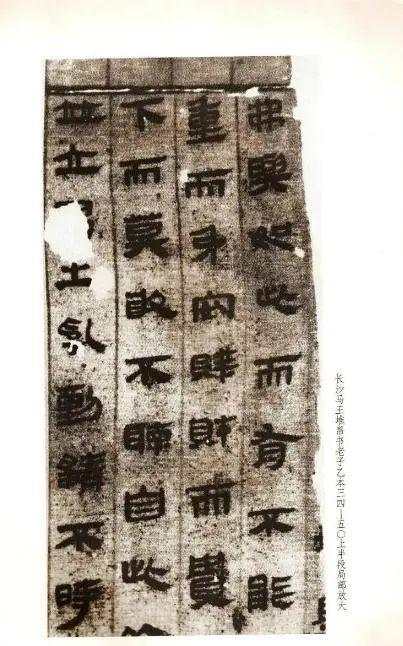 弗與此而有不能
重而身安賤財而貴
下而莫敢不聽自此
並立胃之亂動靜不時
长沙马王堆帛书老子乙本三四—五〇上半段局部放大